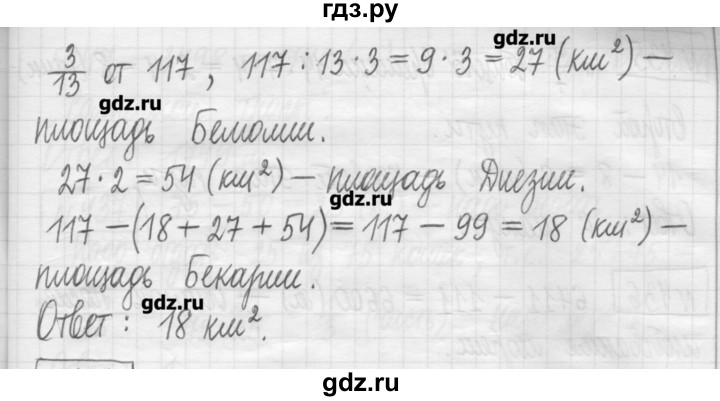 гдз.ру
3/13 от 117, 117 : 13 · 3 = 9 · 3 = 27 (км²) —
gdz.ru
gdz.ru
площадь Бемолии.
27 · 2 = 54 (км²) — площадь Диезии.
gdz.ru
117 — (18 + 27 + 54) = 117 — 99 = 18 (км²) —
площадь Бекарии.
gdz.ru
Ответ: 18 км².
gdz.ru